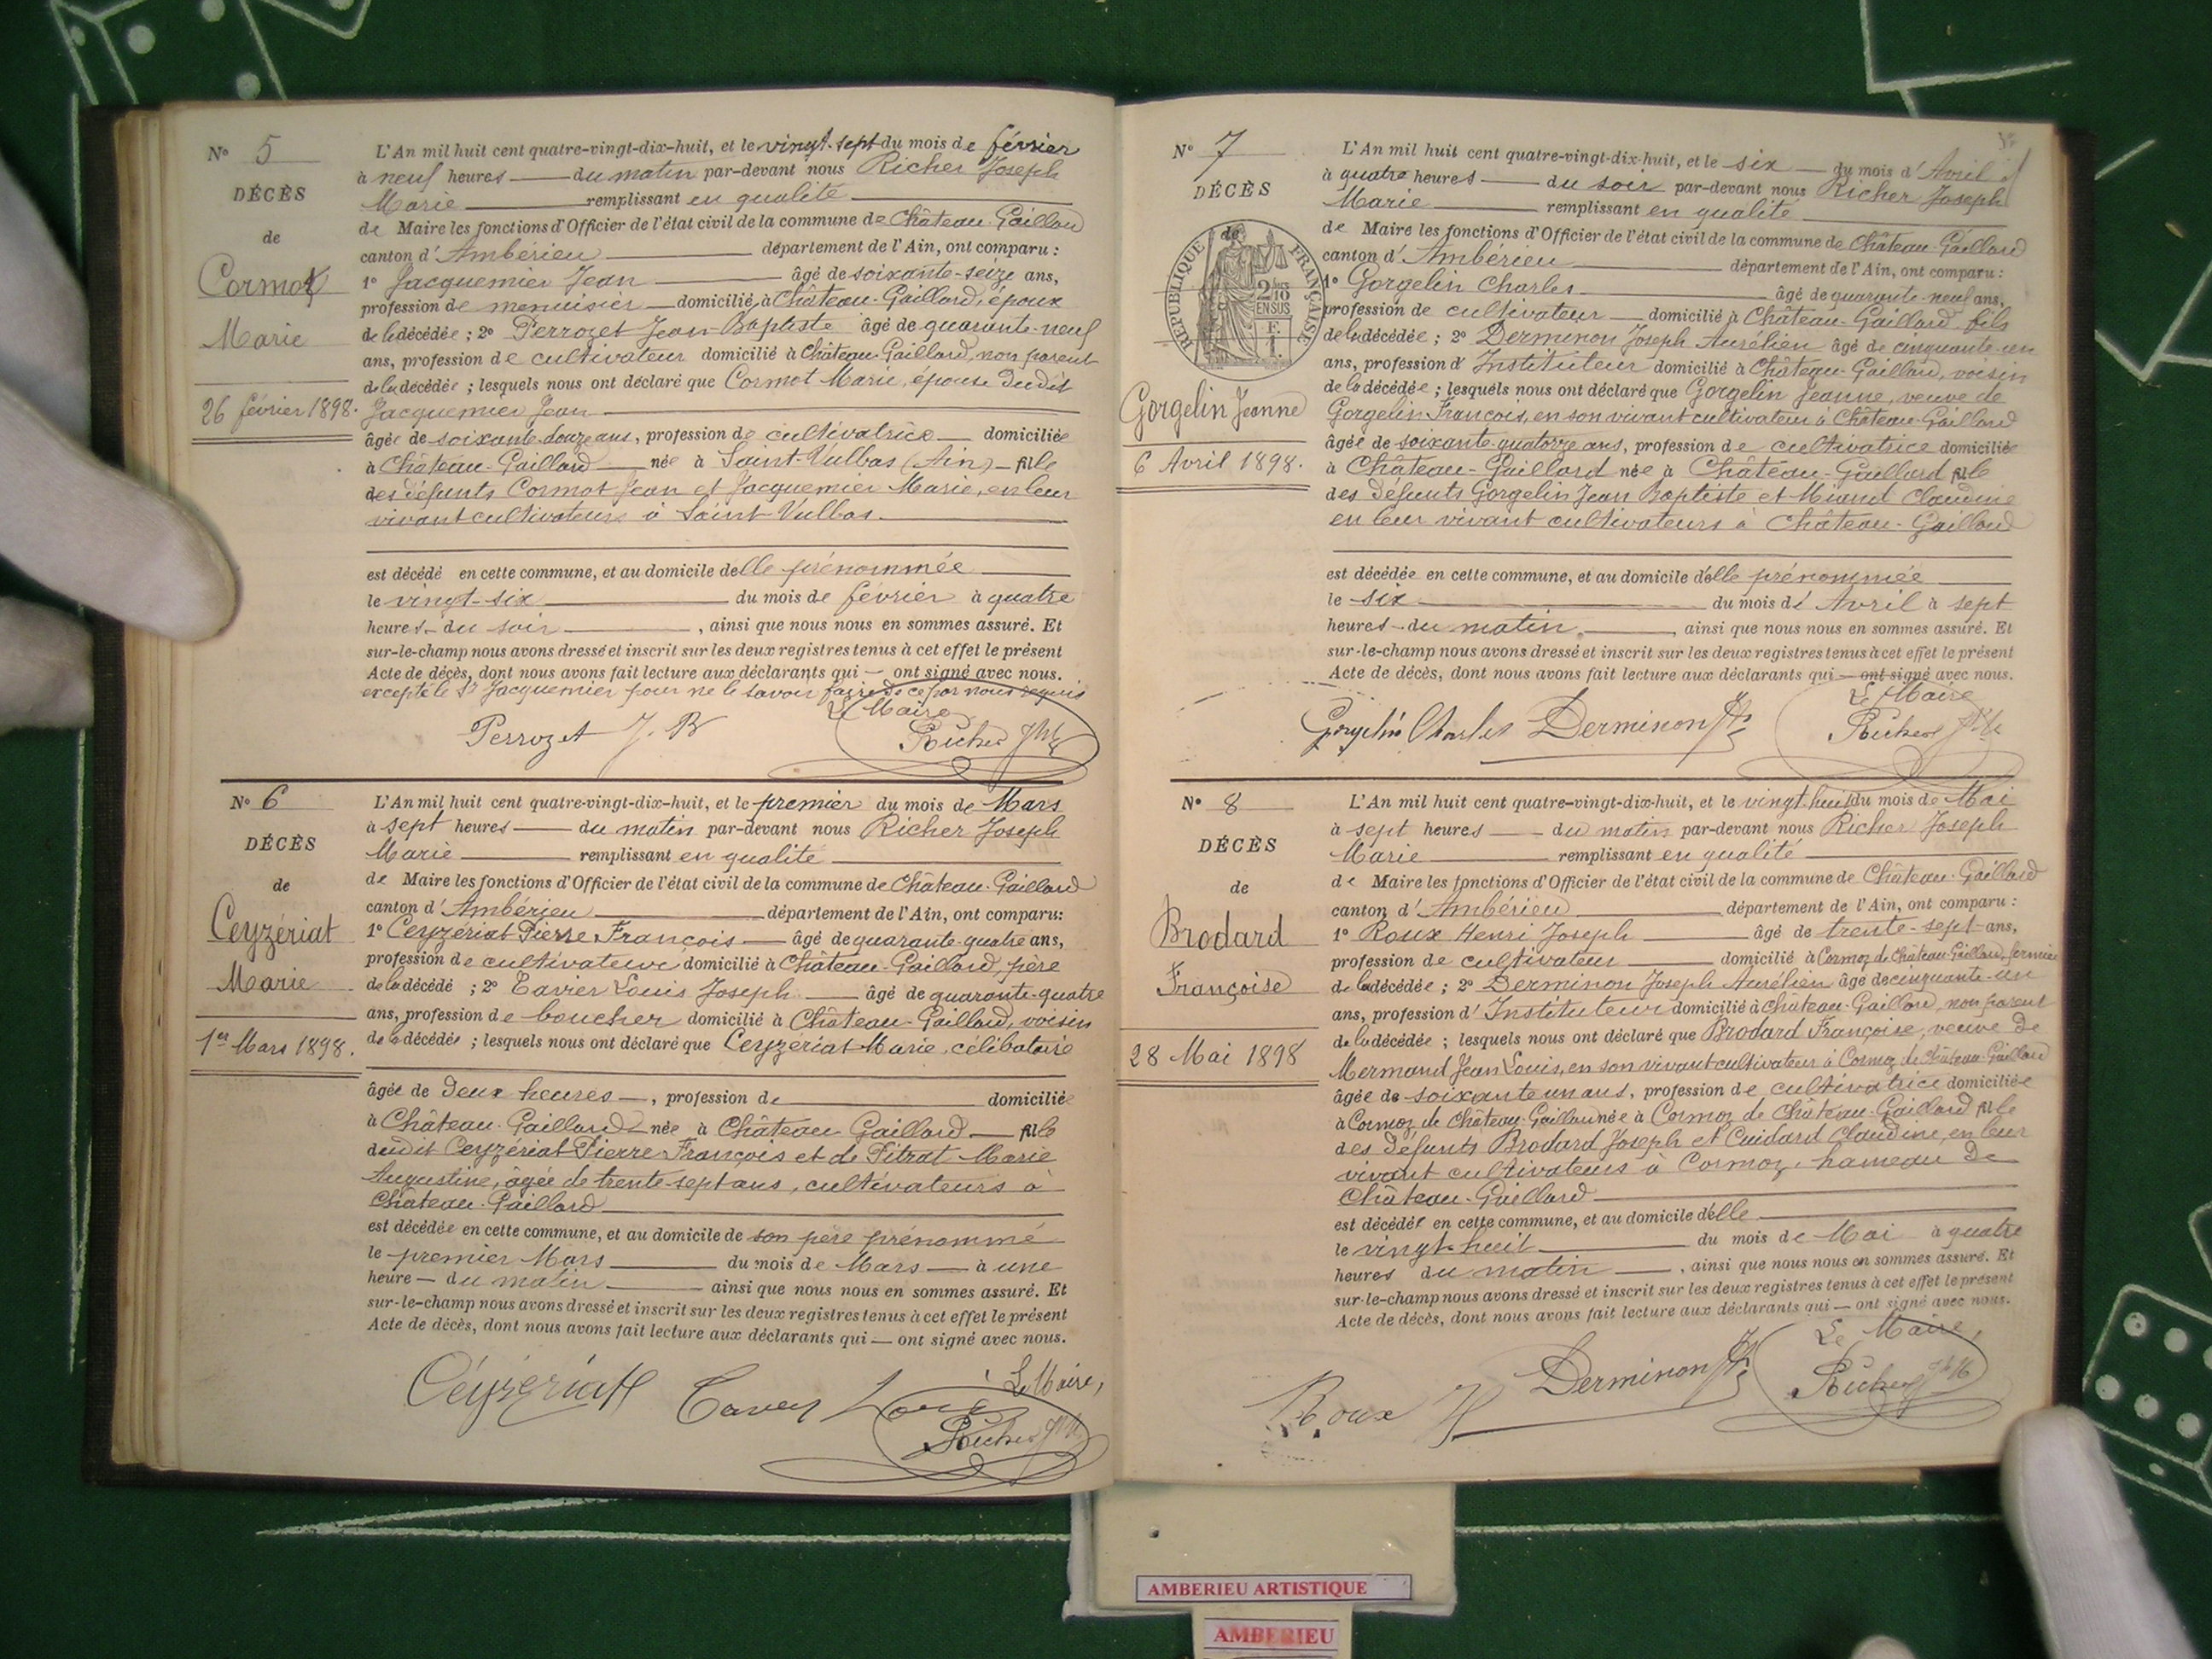 N° 5
DÉCÈS
de
Cormot
Marie
26 février 1898.
L'An mil huit cent quatre-vingt-dix-huit, et le vingt-sept du mois de février
à neuf heures du matin par-devant nous Richer Joseph
Marie remplissant en qualité
de Maire les fonctions d'Officier de l'état civil de la commune de Château-Gaillard
canton d'Ambérieu département de l'Ain, ont comparu :
1° Jacquemier Jean âgé de soixante-seize ans,
profession de menuisier domicilié à Château-Gaillard, époux
de la décédée ; 2° Perrozet Jean-Baptiste âgé de quarante-neuf
ans, profession de cultivateur domicilié à Château-Gaillard, non parent
de la décédée ; lesquels nous ont déclaré que Cormot Marie, épouse dudit
Jacquemier Jean
âgée de soixante-douze ans, profession de cultivatrice domiciliée
à Château-Gaillard née à Saint-Vulbas (Ain) fille
des défunts Cormot Jean et Jacquemier Marie, en leur
vivant cultivateurs à Saint-Vulbas.
est décédé en cette commune, et au domicile d'elle prénommée
le vingt-six du mois de février à quatre
heures du soir, ainsi que nous nous en sommes assuré. Et
sur-le-champ nous avons dressé et inscrit sur les deux registres tenus à cet effet le présent
Acte de décès, dont nous avons fait lecture aux déclarants qui — ont signé avec nous.
excepté le Sr Jacquemier pour ne le savoir faire de ce par nous requis
Le Maire
Perrozet J. B Richer Jph
N° 6
DÉCÈS
de
Ceyzériat
Marie
1er Mars 1898.
L'An mil huit cent quatre-vingt-dix-huit, et le premier du mois de Mars
à sept heures du matin par-devant nous Richer Joseph
Marie remplissant en qualité
de Maire les fonctions d'Officier de l'état civil de la commune de Château-Gaillard
canton d'Ambérieu département de l'Ain, ont comparu :
1° Ceyzériat Pierre François âgé de quarante-quatre ans,
profession de cultivateur domicilié à Château-Gaillard, père
de la décédé ; 2° Tavver Louis Joseph âgé de quarante-quatre
ans, profession de boucher domicilié à Château-Gaillard, voisin
de la décédée ; lesquels nous ont déclaré que Ceyzériat Marie, célibataire
âgée de deux heures, profession de domiciliée
à Château-Gaillard née à Château-Gaillard fille
dudit Ceyzériat Pierre François et de Pitrat Marie
Augustine, âgée de trente-sept ans, cultivateurs à
Château-Gaillard
est décédée en cette commune, et au domicile de son père prénommé
le premier Mars du mois de Mars à une
heure du matin ainsi que nous nous en sommes assuré. Et
sur-le-champ nous avons dressé et inscrit sur les deux registres tenus à cet effet le présent
Acte de décès, dont nous avons fait lecture aux déclarants qui — ont signé avec nous.
Le Maire,
Ceyzériat Louis Richer Jph
N° 7
DÉCÈS
de
RÉPUBLIQUE FRANÇAISE
2/10 EN SUS
F. 1
Gorgelin Jeanne
6 Avril 1898.
L'An mil huit cent quatre-vingt-dix-huit, et le six du mois d'Avril
à quatre heures du soir par-devant nous Richer Joseph
Marie remplissant en qualité
de Maire les fonctions d'Officier de l'état civil de la commune de Château-Gaillard
canton d'Ambérieu département de l'Ain, ont comparu :
1° Gorgelin Charles âgé de quarante-neuf ans,
profession de cultivateur domicilié à Château-Gaillard, fils
de la décédée ; 2° Derminon Joseph Aurélien âgé de cinquante-un
ans, profession d'Instituteur domicilié à Château-Gaillard, voisin
de la décédée ; lesquels nous ont déclaré que Gorgelin Jeanne, veuve de
Gorgelin François, en son vivant cultivateur à Château-Gaillard
âgée de soixante-quatorze ans, profession de cultivatrice domiciliée
à Château-Gaillard née à Château-Gaillard fille
des défunts Gorgelin Jean Baptiste et Miand Claudine
en leur vivant cultivateurs à Château-Gaillard
est décédée en cette commune, et au domicile d'elle prénommée
le six du mois d'Avril à sept
heures du matin, ainsi que nous nous en sommes assuré. Et
sur-le-champ nous avons dressé et inscrit sur les deux registres tenus à cet effet le présent
Acte de décès, dont nous avons fait lecture aux déclarants qui — ont signé avec nous.
Le Maire
Gorgelin Charles Derminon Richer Jph
N° 8
DÉCÈS
de
Brodard
Françoise
28 Mai 1898
L'An mil huit cent quatre-vingt-dix-huit, et le vingt huit du mois de Mai
à sept heures du matin par-devant nous Richer Joseph
Marie remplissant en qualité
de Maire les fonctions d'Officier de l'état civil de la commune de Château-Gaillard
canton d'Ambérieu département de l'Ain, ont comparu :
1° Roux Henri Joseph âgé de trente-sept ans,
profession de cultivateur domicilié à Cormoz de Château-Gaillard, fermier
de la décédée ; 2° Derminon Joseph Aurélien âgé de cinquante-un
ans, profession d'Instituteur domicilié à Château-Gaillard, non parent
de la décédée ; lesquels nous ont déclaré que Brodard Françoise, veuve de
Mermand Jean Louis, en son vivant cultivateur à Cormoz de Château-Gaillard
âgée de soixante un ans, profession de cultivatrice domiciliée
à Cormoz de Château-Gaillard née à Cormoz de Château-Gaillard fille
des défunts Brodard Joseph et Cuidard Claudine, en leur
vivant cultivateurs à Cormoz, hameau de
Château-Gaillard
est décédée en cette commune, et au domicile d'elle
le vingt-huit du mois de Mai à quatre
heures du matin, ainsi que nous nous en sommes assuré. Et
sur-le-champ nous avons dressé et inscrit sur les deux registres tenus à cet effet le présent
Acte de décès, dont nous avons fait lecture aux déclarants qui — ont signé avec nous.
Le Maire,
Roux H Derminon Richer Jph
AMBERIEU ARTISTIQUE
AMBERIEU